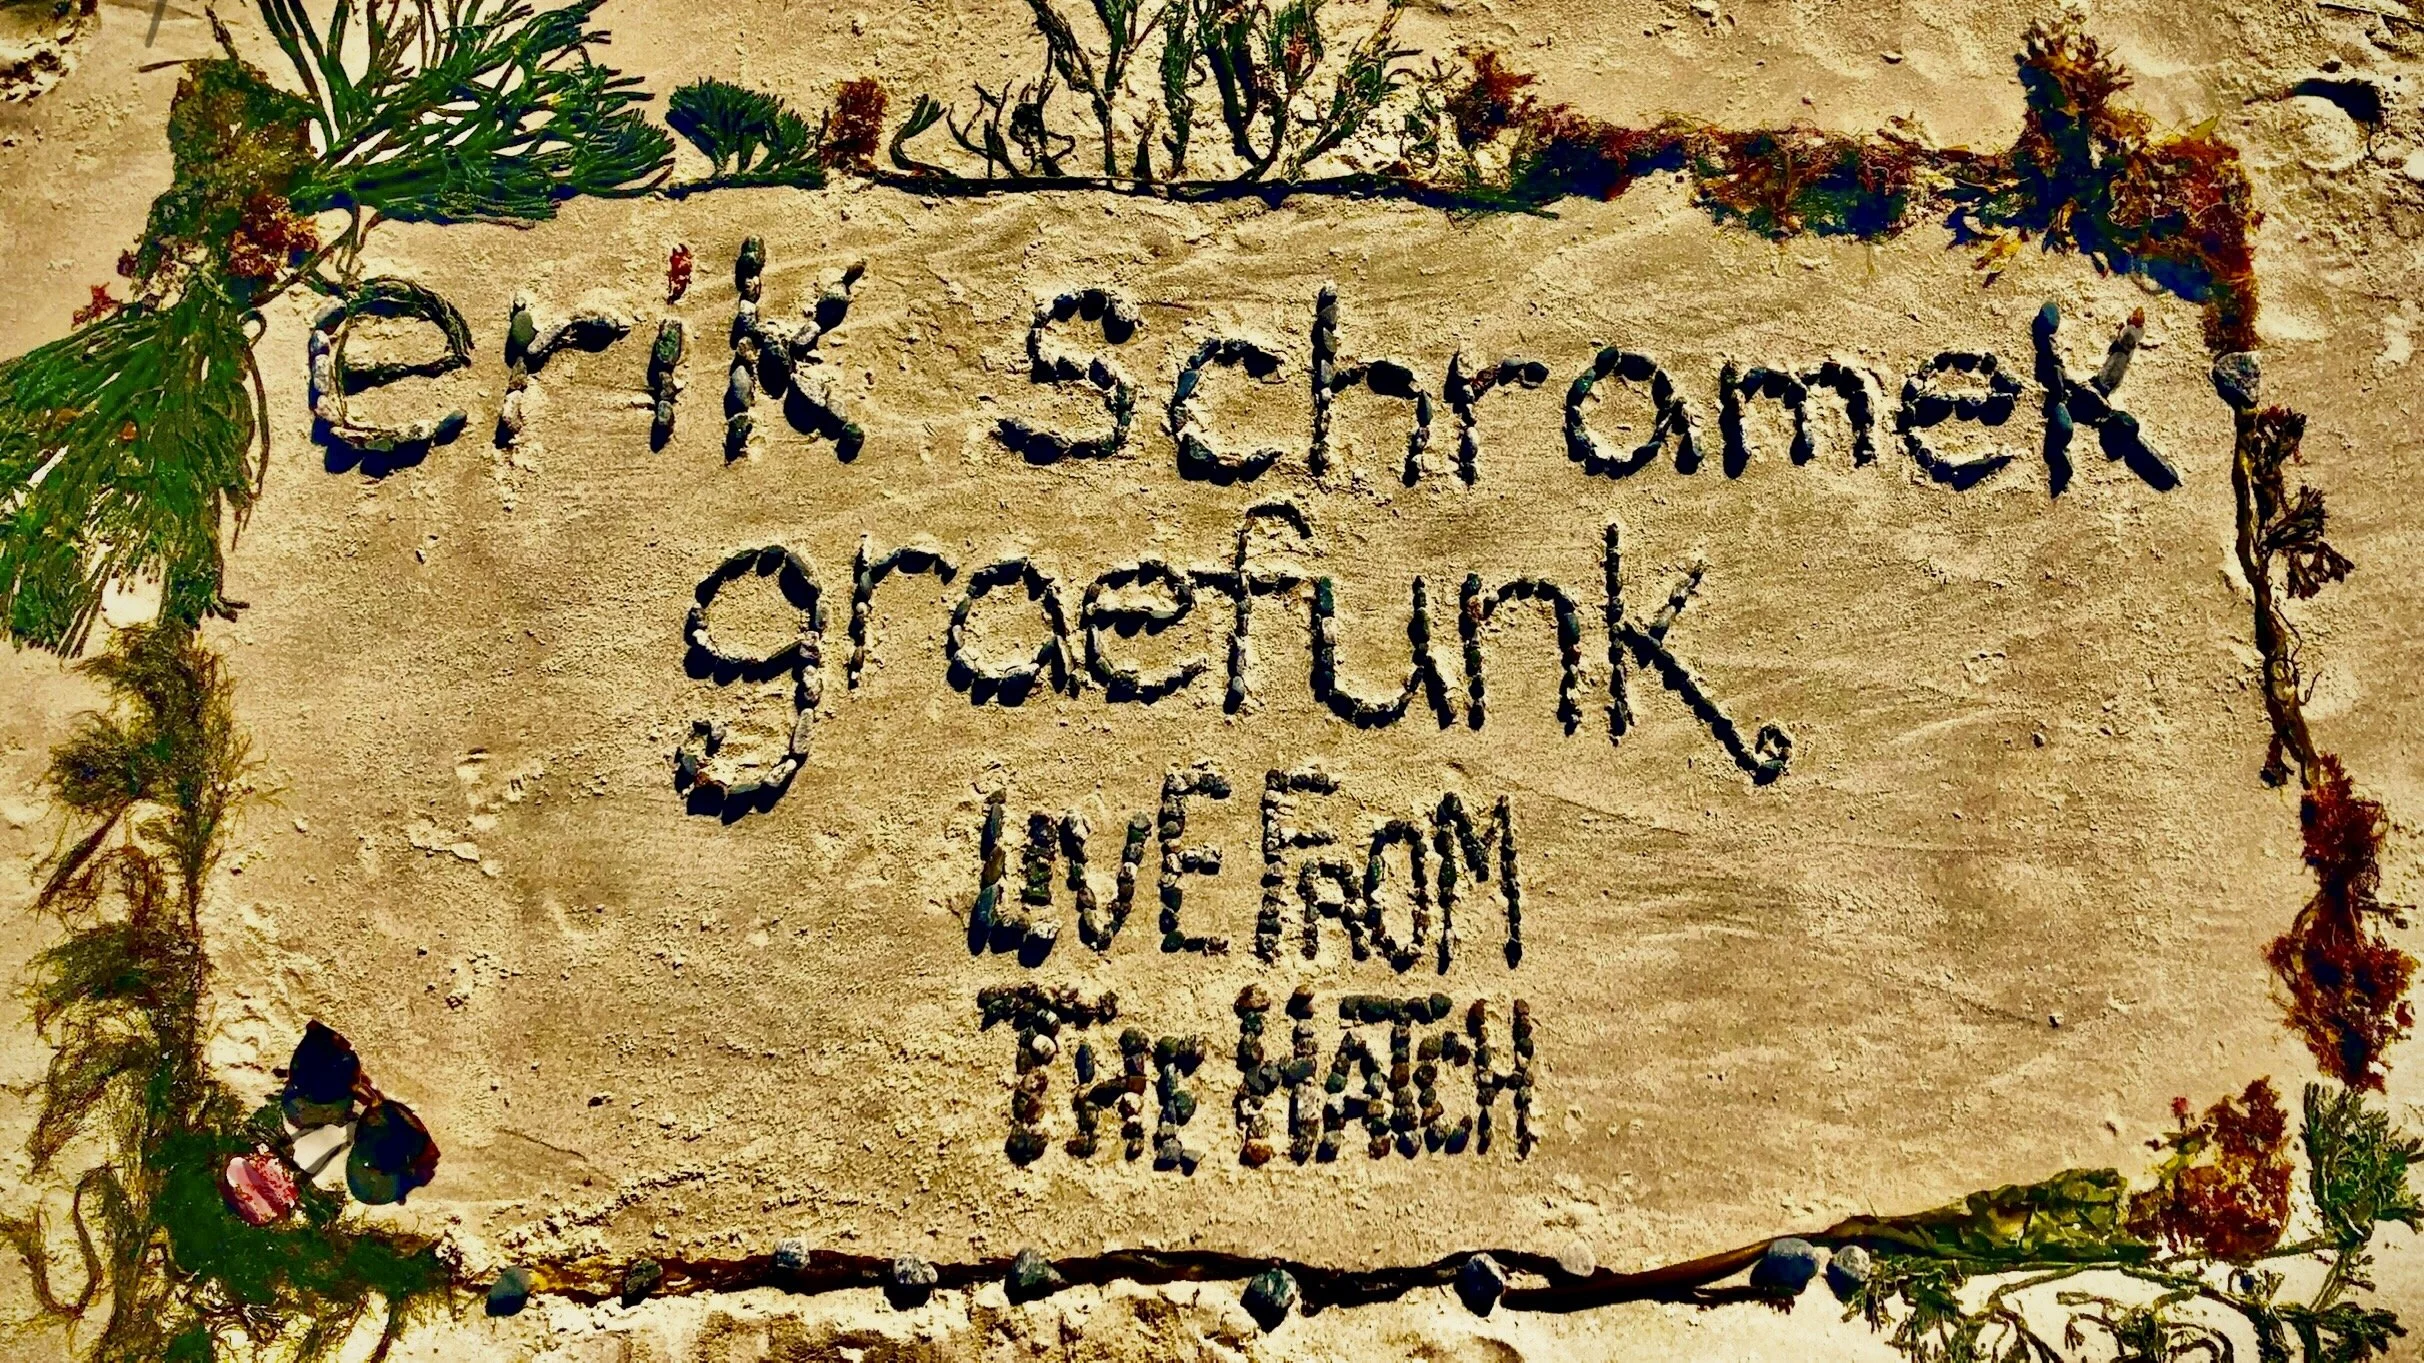 erik schramek
graefunk
LIVE FROM
THE HATCH